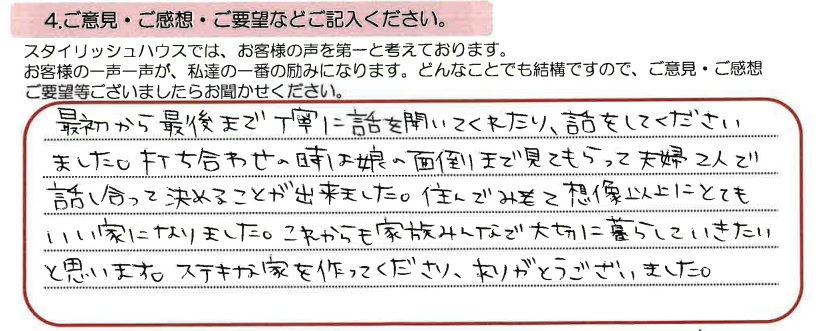 4.ご意見・ご感想・ご要望などご記入ください。
スタイリッシュハウスでは、お客様の声を第一と考えております。
お客様の一声一声が、私達の一番の励みになります。どんなことでも結構ですので、ご意見・ご感想
ご要望等ございましたらお聞かせください。
最初から最後まで丁寧に話を聞いてくれたり、話をしてください
ました。打ち合わせの時は娘の面倒まで見てもらって夫婦2人で
話し合って決めることが出来ました。住んでみて想像以上にとても
いい家になりました。これからも家族みんなで大切に暮らしていきたい
と思います。ステキな家を作ってくださり、ありがとうございました。